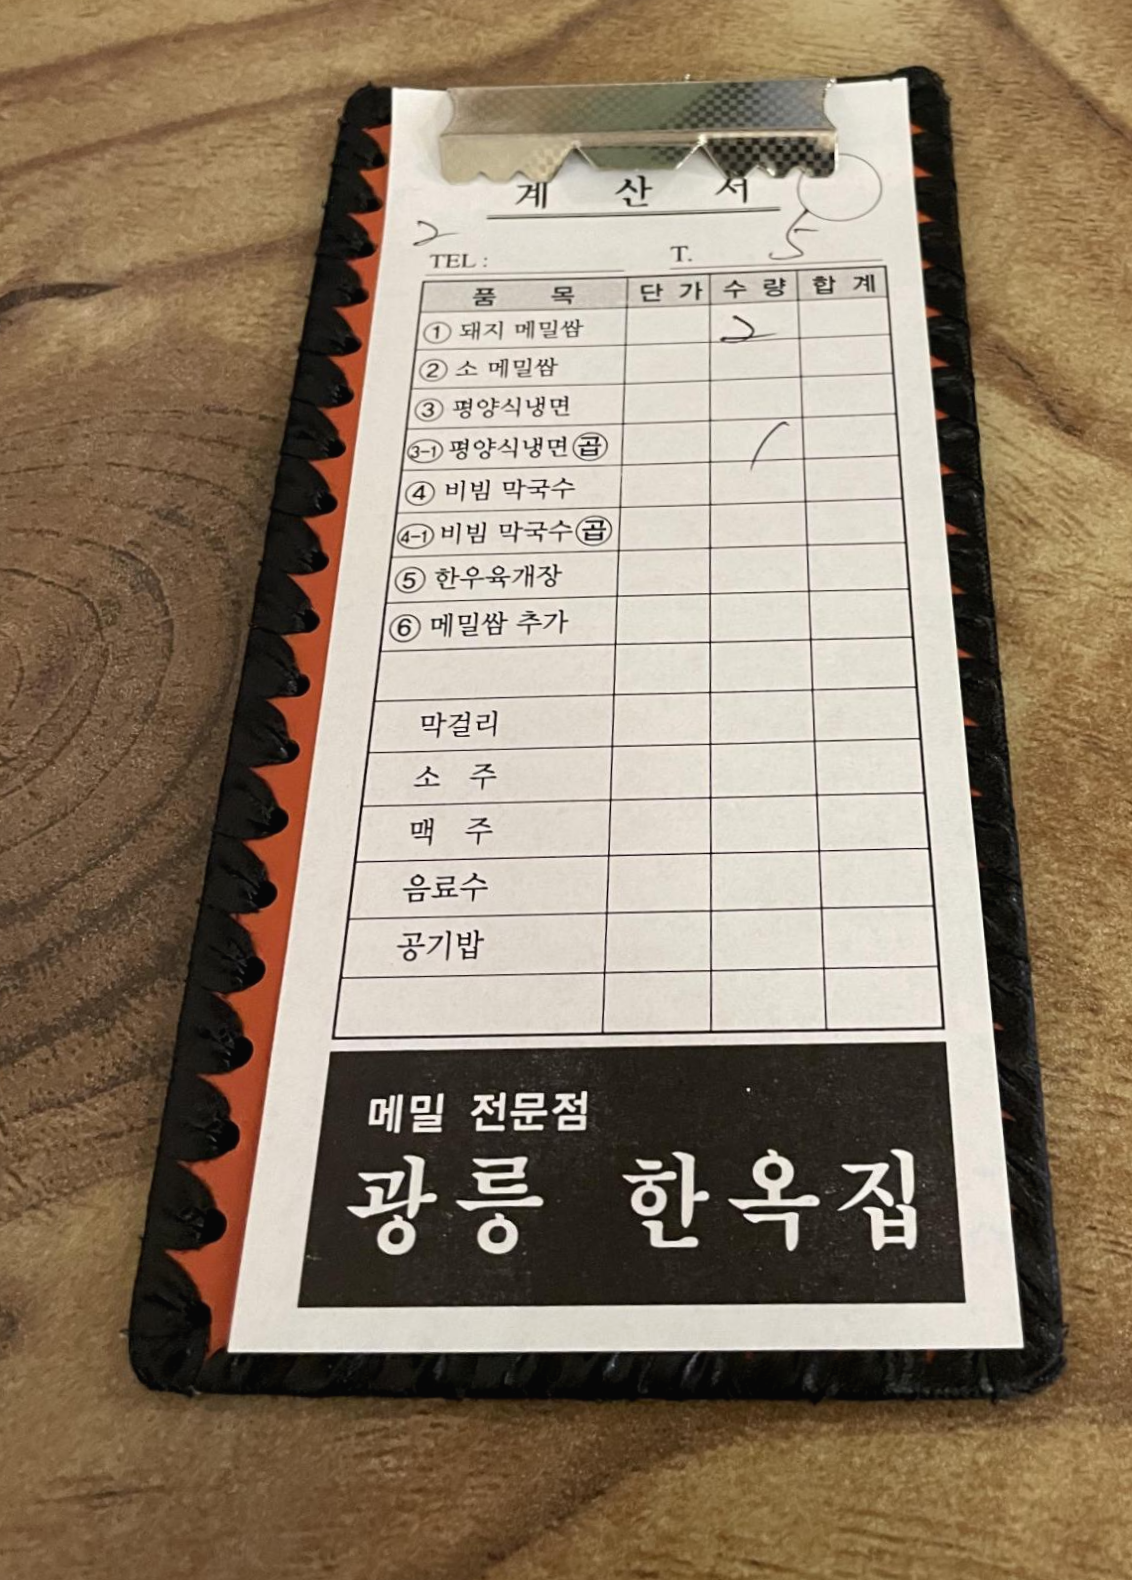 계 산 서
2
TEL : T. 5
품 목 단 가 수 량 합 계
① 돼지 메밀쌈 2
② 소 메밀쌈
③ 평양식냉면
3-1 평양식냉면 곱 /
④ 비빔 막국수
4-1 비빔 막국수 곱
⑤ 한우육개장
⑥ 메밀쌈 추가
막걸리
소 주
맥 주
음료수
공기밥
메밀 전문점
광릉 한옥집